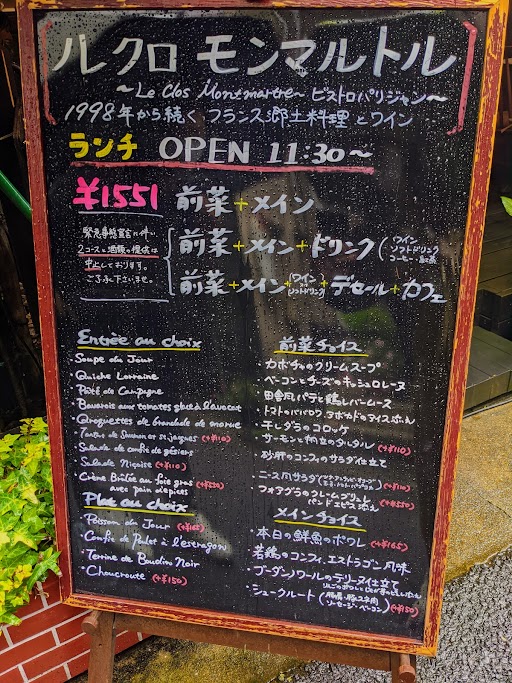 ル クロ モンマルトル
～Le Clos Montmartre～ ビストロパリジャン～
1998年から続く フランス郷土料理 とワイン
ランチ OPEN 11:30～
¥1551 前菜+メイン
緊急事態宣言に伴い
2コースと酒類の提供は
中止しております。
ご了承下さいませ。
前菜+メイン+ドリンク(ワイン ソフトドリンク コーヒー 紅茶
前菜+メイン+(ワイン or ソフトドリンク)+デセール+カフェ
Entrée au choix
・Soupe du Jour
・Quiche Lorraine
・Pâté de Campagne
・Bavarois aux tomates glace à l'avocat
・Croquettes de brandade de morue
・Tartare de Saumon et St jaques (+¥110)
・Salade de confit de gésiers
・Salade Niçoise (+¥110)
・Crème Brûlée au foie gras avec pain d'epices (+¥550)
Plat au choix
・Poisson du Jour (+¥165)
・Confit de Poulet à l'estragon
・Terrine de Boudin Noir
・Choucroute (+¥150)
前菜チョイス
・カボチャのクリームスープ
・ベーコンとチーズのキッシュロレーヌ
・田舎風パテと鶏レバームース
・トマトのババロワ、アボカドのアイス添え
・干しダラのコロッケ
・サーモンと帆立のタルタル (+¥110)
・砂肝のコンフィのサラダ仕立て
・ニース風サラダ (+¥110)
・フォアグラのクレームブリュレ
パンデピス添え (+¥550)
メインチョイス
・本日の鮮魚のポワレ (+¥165)
・若鶏のコンフィ、エストラゴン風味
・ブーダンノワールのテリーヌ仕立て
・シュークルート (豚肩、豚スネ肉 ソーセージ・ベーコン) (+¥150)